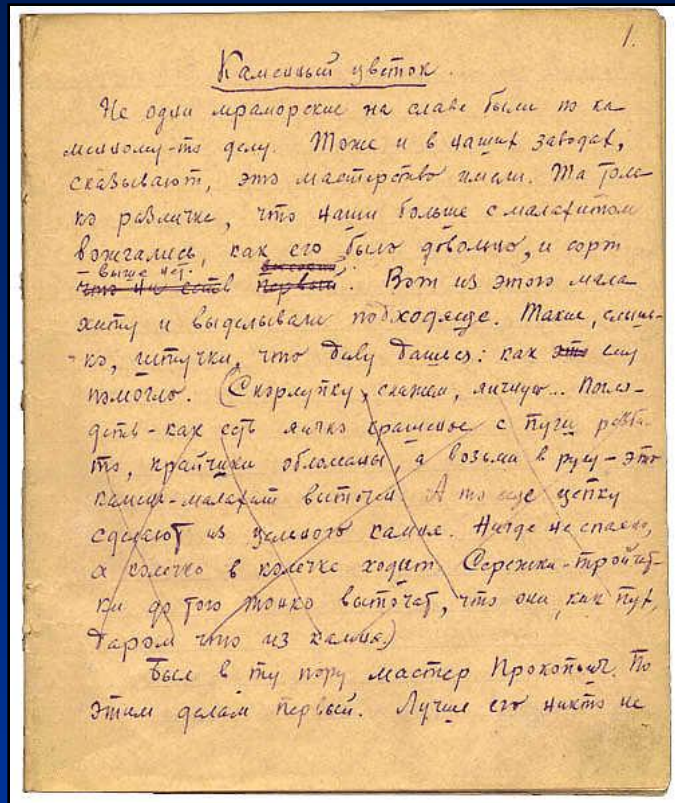 1.
Каменный цветок.
Не одни мраморские на славе были по ка
менному-то делу. Тоже и в наших заводах,
сказывают, это мастерство имели. Та толь
ко различка, что наши больше с малахитом
вожгались, как его было довольно, и сорт
выше нет. высокий
что ни есть первый. Вот из этого мала
хиту и выделывали подходяще. Такие, слышь-
ко, штучки, что диву дашься: как это ему
помогло. (Скорлупку, скажем, яичную... Погля-
деть - как есть яичко крашеное с пуги разби-
то, крайчики обломаны, а возьми в руку - это
камень-малахит выточен. А то еще цепку
сделают из цельного камня. Нигде не спаяно,
а колечко в колечке ходит. Сережки-тройчат-
ки до того тонко выточат, что они, как пух,
даром что из камня.)
Был в ту пору мастер Прокопьич. По
этим делам первый. Лучше его никто не